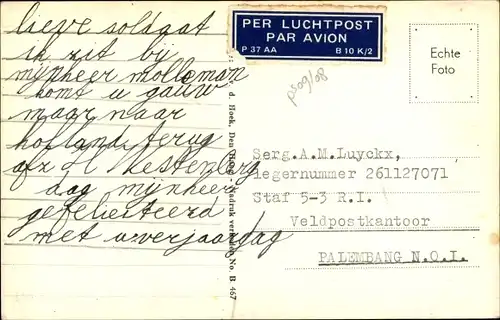 lieve soldaat
ik zit bij
mijnheer molleman
komt u gauw
maar naar
holland terug
afz H Westenberg
dag mijnheer
gefeliciteerd
met uverjaardag
PER LUCHTPOST
PAR AVION
P 37 AA B 10 K/2
Echte
Foto
d. Hoek, Den Nadruk verboden No. B 467
Serg.A.M.Luyckx,
legernummer 261127071
Staf 5-3 R.I.
Veldpostkantoor
PALEMBANG N.O.I.